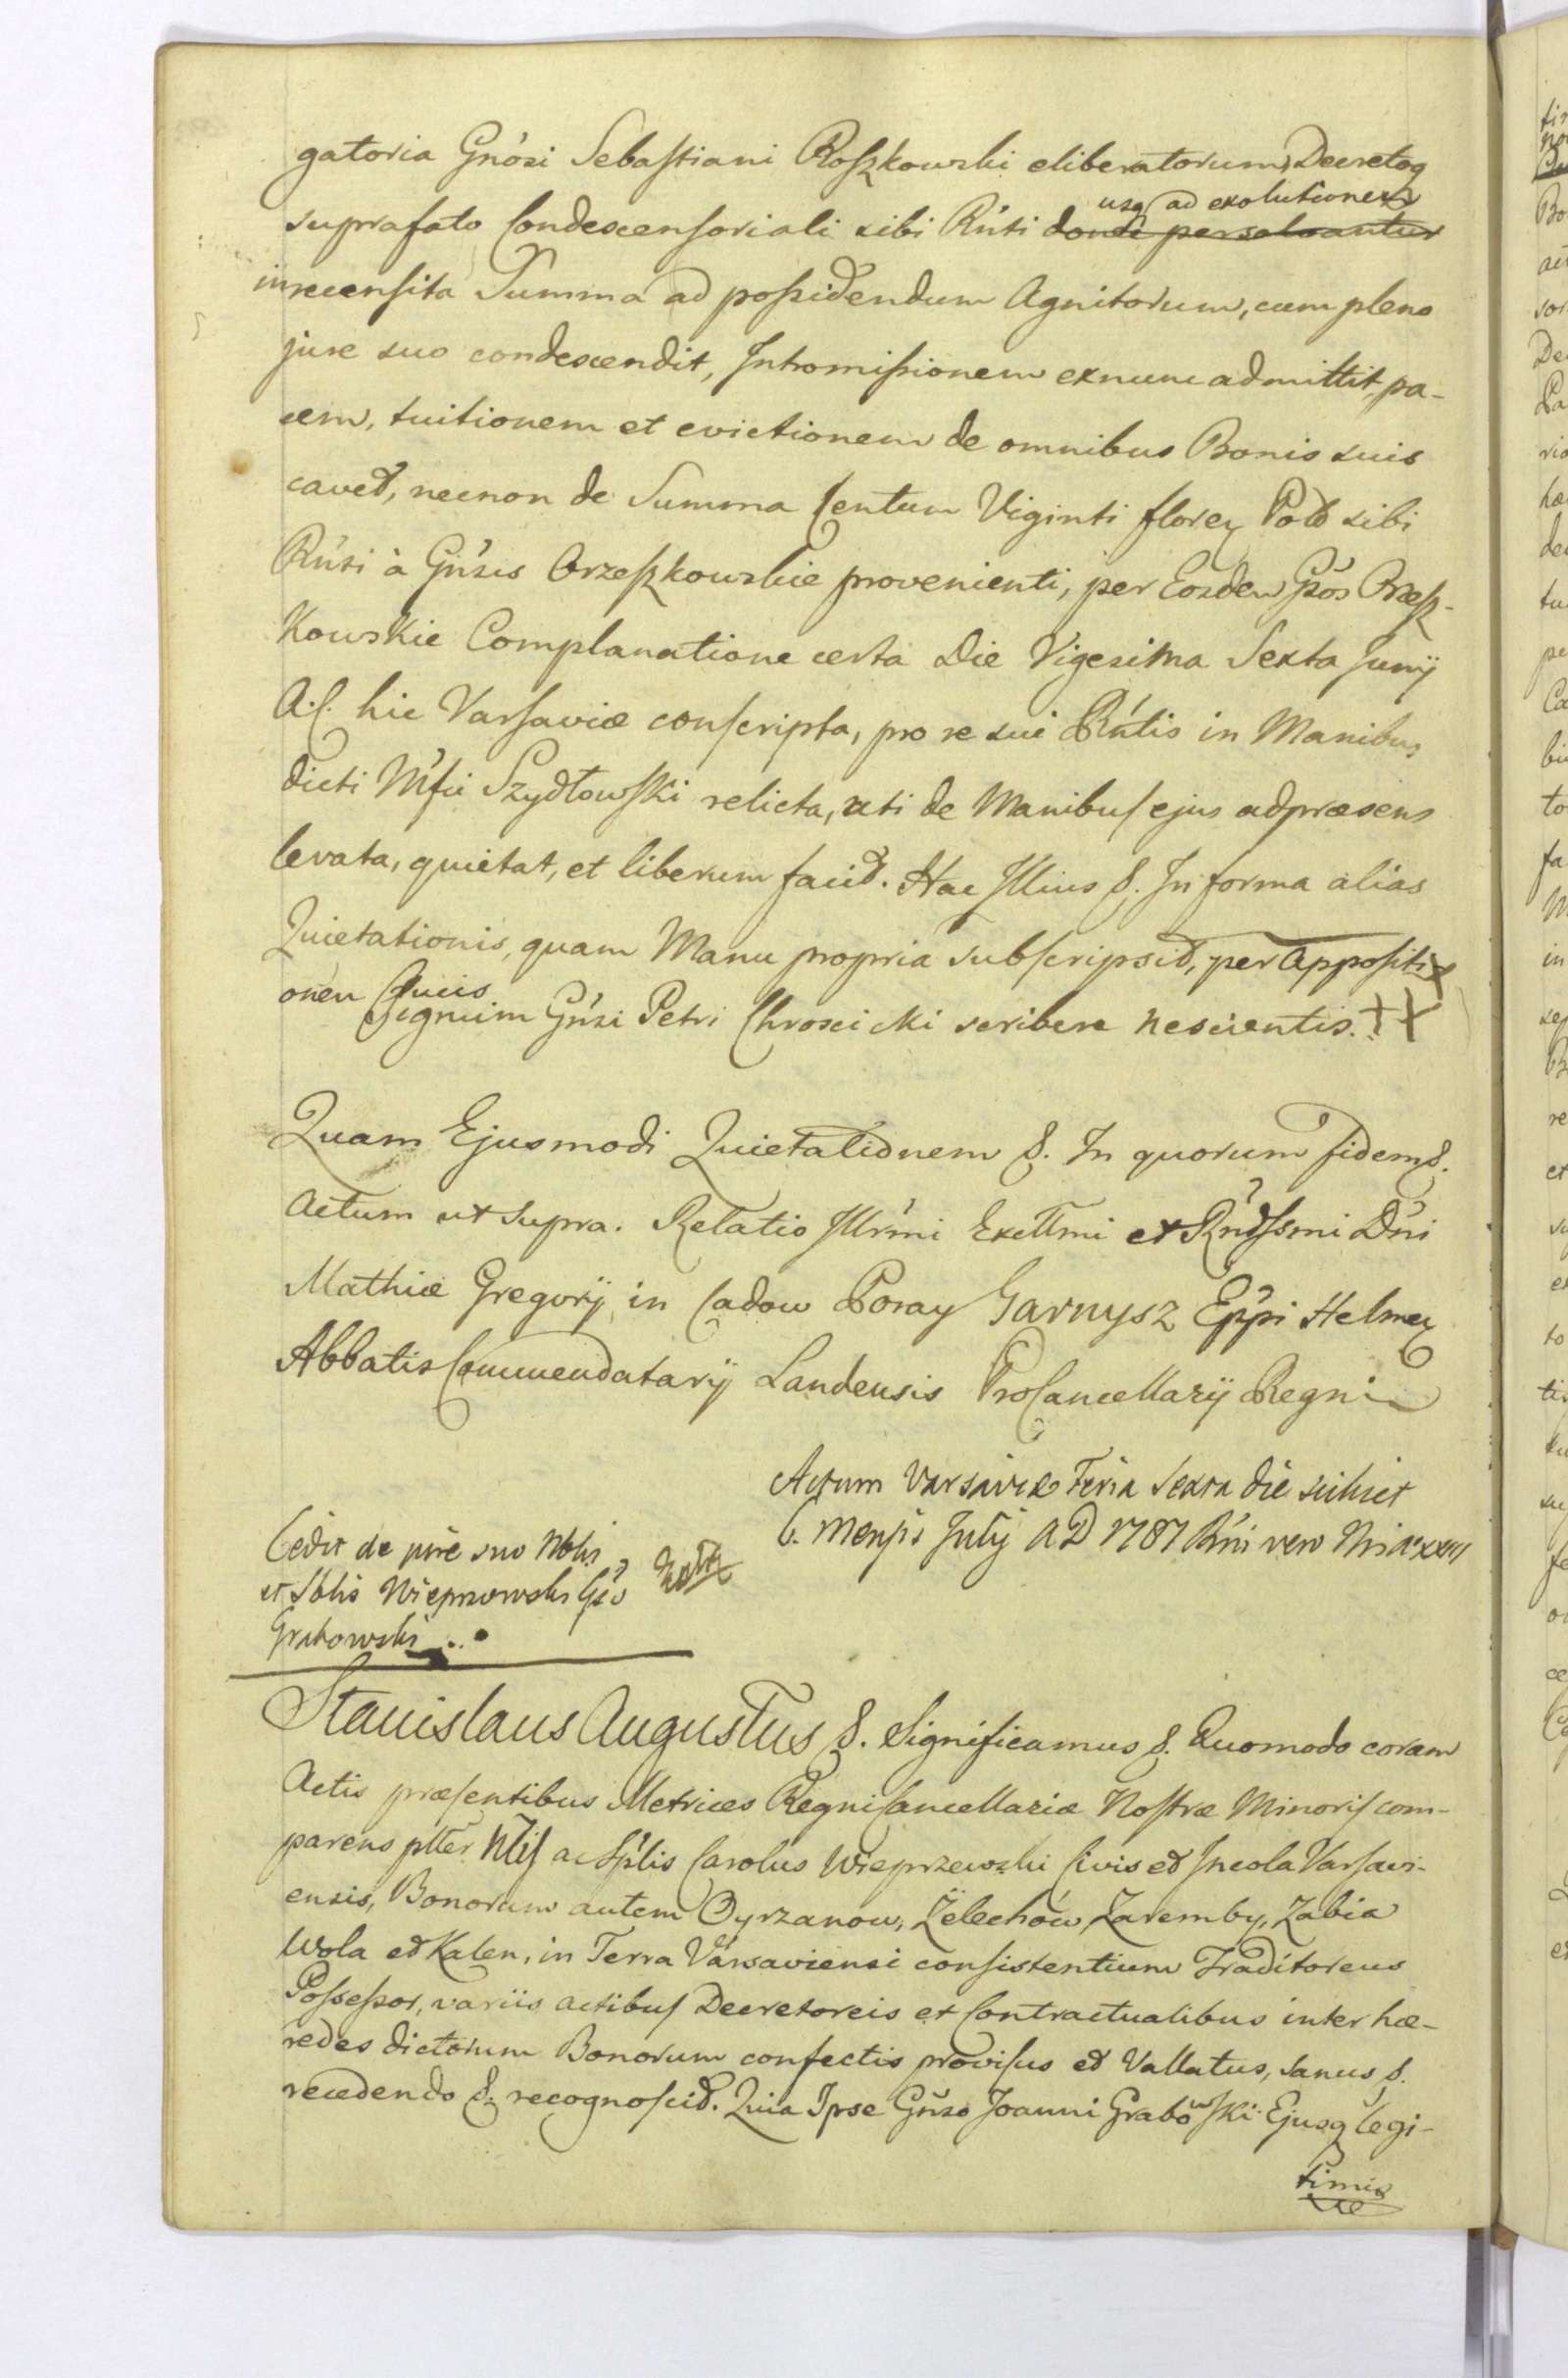 gatoria Gnosi Sebastiani Roszkowski eliberatorum, Decretoq
usq ad exolutionem
suprafato Condescensoriali sibi Rńti donde persolvantur
in recensita Summa ad possidendum Agnitorum, cum pleno
jure suo condescendit, Intromissionem exnunc admittit, pa-
cem, tuitionem et evictionem de omnibus Bonis suis
cavet, necnon de Summa Centum Viginti floren Pol sibi
Rńti à Gńsis Orzeszkowskie provenienti, per Eosdem Gsos Orzesz-
Kowskie Complanatione certa Die Vigesima Sexta Junij
A.C. hic Varsaviæ conscripta, pro re sui Rńtis in Manibus
dicti Mfci Szydłowski relicta, uti de Manibus ejus adpræsens
levata, quietat, et liberum facit. Hac Illius &. In forma alias
Quietationis, quam Manu propria subscripsit, per Appositi
onem Crucis
Signum Gńsi Petri Chroscicki scribere nescientis. ++
Quam Ejusmodi Quietationem &. In quorum fidem &.
Actum ut Supra. Relatio Illrmi Excllmi et Rńdssmi Dńi
Mathiæ Gregorij in Cadow Poray Garnysz Eppi Helmen
Abbatis Commendatarij Landensis ProCancellarij Regni
Actum Varsaviæ Feria Sexta die scilicet
6. Mensis Julij A D 1787 Rńi vero Nri Aº XXIII
Cedit de jure suo Nblis
et Sblis Wieprzowski Gso
Grabowski
Stanislaus Augustus &. Significamus &. Quomodo coram
Actis præsentibus Metrices Regni Cancellariæ Nostræ Minoris com-
parens plter Nlis ac Splis Carolus Wieprzewski Civis et Incola Varsavi-
ensis, Bonorum autem Oyrzanow, Żelechów, Zaremby, Zabia
Wola et Kalen, in Terra Varsaviensi consistentium Traditoreus
Possessor, variis actibus Decretoreis et Contractualibus inter hæ-
redes dictorum Bonorum confectis provisus et Vallatus, sanus &.
recedendo &. recognoscit. Quia Ipse Gńso Joanni Grabowski Ejusq legi-
timis